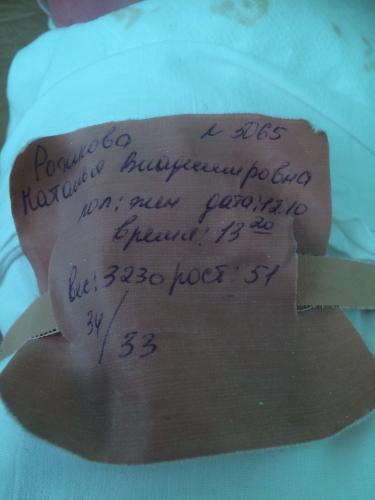 Родикова № 3065
Наталья Владимировна
пол: жен дата: 12.10
время: 13 20
вес: 3230 рост: 51
34/33